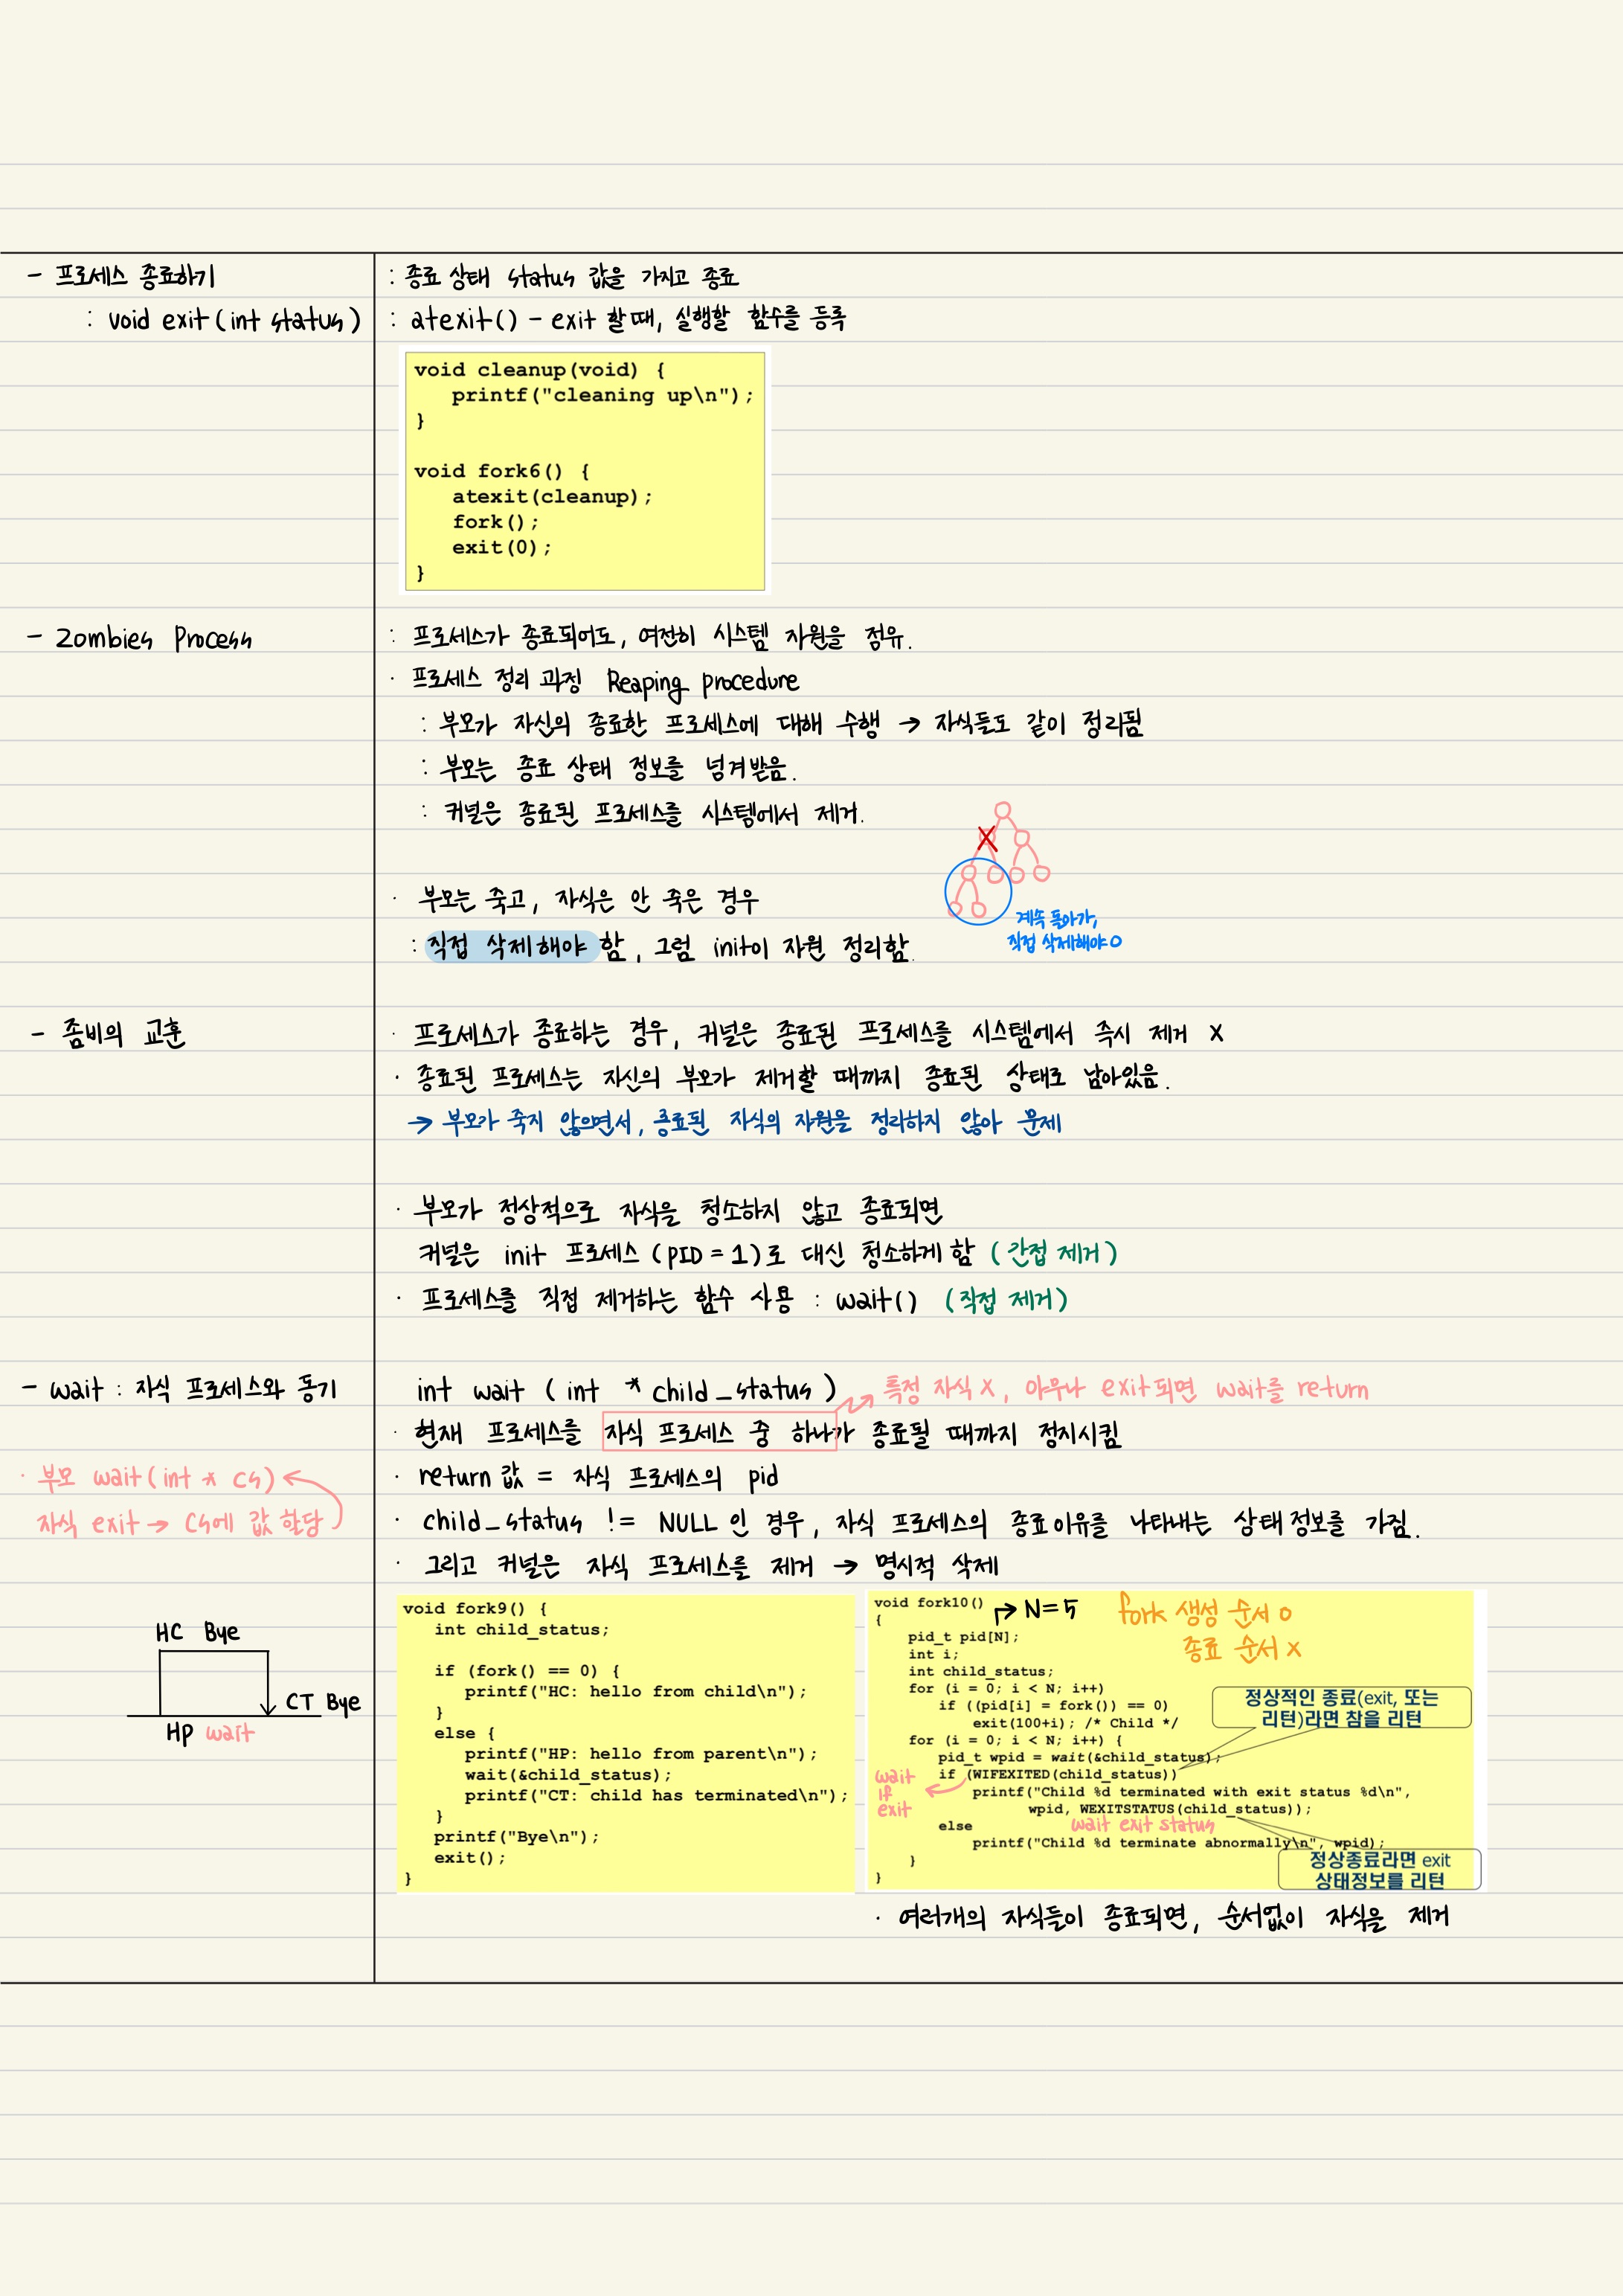 - 프로세스 종료하기
: void exit(int status)
: 종료 상태 status 값을 가지고 종료
: atexit() - exit 할 때, 실행할 함수를 등록
void cleanup(void) {
printf("cleaning up\n");
}
void fork6() {
atexit(cleanup);
fork();
exit(0);
}
- Zombies Process
: 프로세스가 종료되어도, 여전히 시스템 자원을 점유.
· 프로세스 정리 과정 Reaping procedure
: 부모가 자신의 종료한 프로세스에 대해 수행 → 자식들도 같이 정리됨
: 부모는 종료 상태 정보를 넘겨받음.
: 커널은 종료된 프로세스를 시스템에서 제거.
· 부모는 죽고, 자식은 안 죽은 경우
: 직접 삭제해야 함, 그럼 init이 자원 정리함.
계속 돌아가,
직접 삭제해야 O
- 좀비의 교훈
· 프로세스가 종료하는 경우, 커널은 종료된 프로세스를 시스템에서 즉시 제거 X
· 종료된 프로세스는 자신의 부모가 제거할 때까지 종료된 상태로 남아있음.
→ 부모가 죽지 않으면서, 종료된 자식의 자원을 정리하지 않아 문제
· 부모가 정상적으로 자식을 청소하지 않고 종료되면
커널은 init 프로세스 (PID = 1)로 대신 청소하게 함 (간접 제거)
· 프로세스를 직접 제거하는 함수 사용 : wait() (직접 제거)
- wait : 자식 프로세스와 동기
int wait ( int * child_status )
특정 자식 X, 아무나 exit되면 wait를 return
· 현재 프로세스를 자식 프로세스 중 하나가 종료될 때까지 정지시킴
· return 값 = 자식 프로세스의 pid
· child_status != NULL 인 경우, 자식 프로세스의 종료이유를 나타내는 상태정보를 가짐.
· 그리고 커널은 자식 프로세스를 제거 → 명시적 삭제
· 부모 wait(int * cs)
자식 exit → cs에 값 할당
HC Bye
CT Bye
HP wait
void fork9() {
int child_status;
if (fork() == 0) {
printf("HC: hello from child\n");
}
else {
printf("HP: hello from parent\n");
wait(&child_status);
printf("CT: child has terminated\n");
}
printf("Bye\n");
exit();
}
void fork10()
→ N=5
fork 생성 순서 O
종료 순서 X
{
pid_t pid[N];
int i;
int child_status;
for (i = 0; i < N; i++)
if ((pid[i] = fork()) == 0)
exit(100+i); /* Child */
정상적인 종료(exit, 또는
리턴)라면 참을 리턴
for (i = 0; i < N; i++) {
pid_t wpid = wait(&child_status);
if (WIFEXITED(child_status))
wait
if
exit
printf("Child %d terminated with exit status %d\n",
wpid, WEXITSTATUS(child_status));
wait exit status
else
printf("Child %d terminate abnormally\n", wpid);
}
}
정상종료라면 exit
상태정보를 리턴
· 여러개의 자식들이 종료되면, 순서없이 자식을 제거